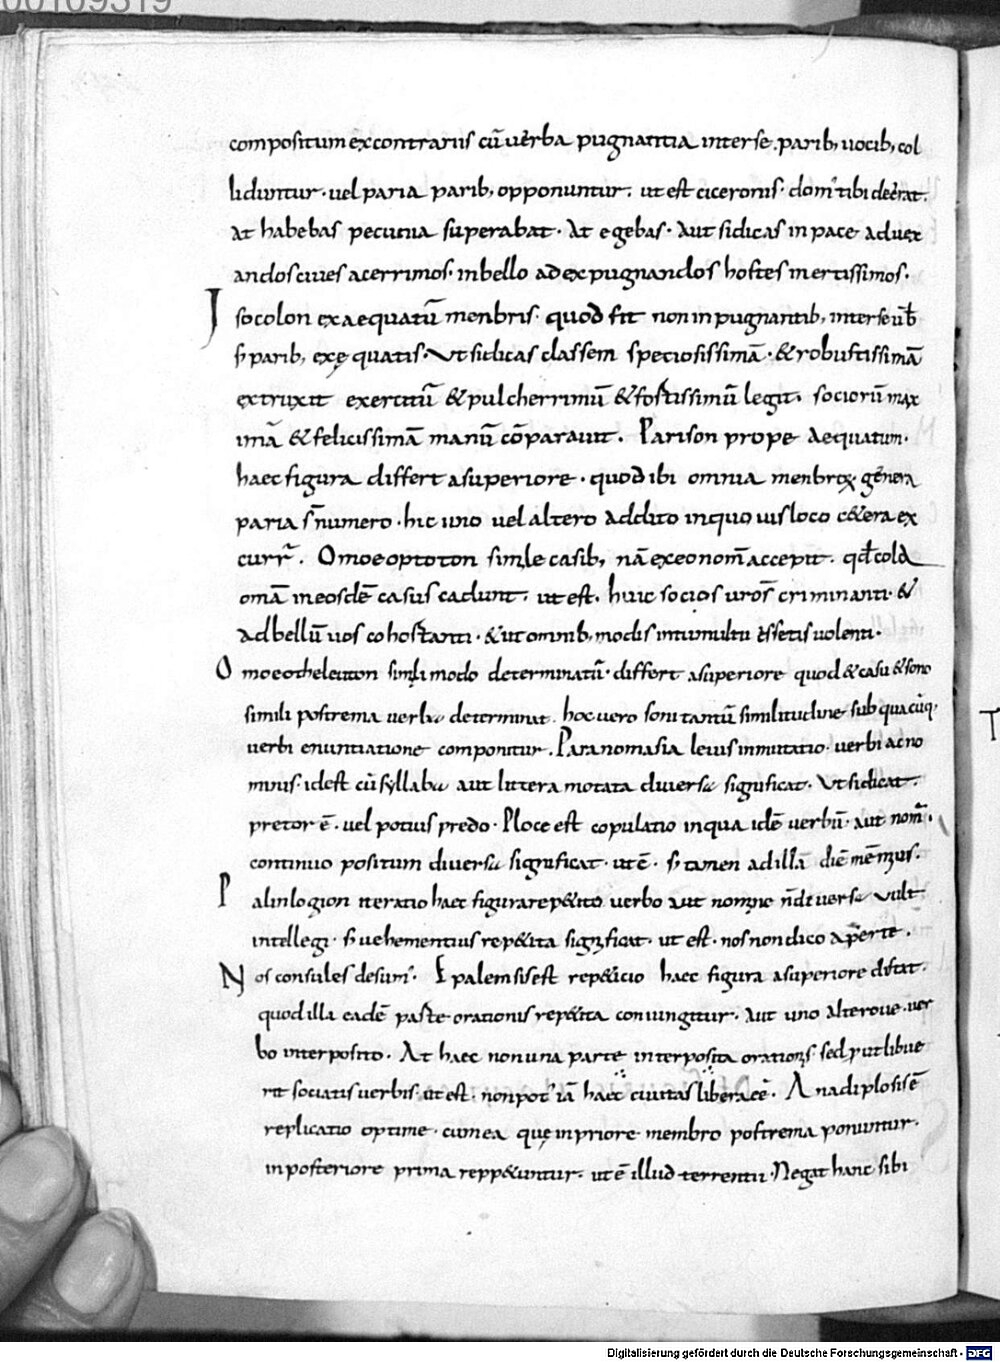 00109319
compositum ex contrariis cū verba pugnantia inter se. parib; uocib; col
liduntur. uel paria parib; opponuntur. ut est ciceronis. dom' tibi deerat.
At habebas pecunia superabat. At egebas. Aut si dicas in pace ad uex
andos ciues acerrimos. in bello ad expugnandos hostes inertissimos.
Isocolon exaequatū menbris. quod fit non in pugnantib; inter se ūb
s; parib; exęquatis. Ut si dicas classem speciosissimā. & robustissimā
extruxit exercitū & pulcherrimū & fostissimū legit. sociorū max
imā & felicissimā manū cōparauit. Parison prope aequatum.
haec figura differt a superiore. quod ibi omnia menbra genera
paria s̄ numero. hic uno uel altero addito in quouis loco c&era ex
curr̄. Omoeoptoton simile casib; nā ex eo nom̄ accepit. qd cola
omā in eosdē casus cadunt. ut est. huic socios uros̄ criminanti. &
ad bellū uos cohostanti. & ut omnib; modis intumultu ēssetis uolenti.
Omoeotheleuton simili modo determinatū. differt a superiore quod & casu & sono
simili postrema uerba determinat. hoc uero soni tantū similitudine sub quacūq;
uerbi enuntiatione componitur. Paranomasia leuis inmutatio. uerbi ac no
minis. id est cū syllaba aut littera motata diuersa significat. Ut si dicat.
pretor ē. uel potius predo. Ploce est copulatio in qua idē uerbū. aut nom̄.
continuo positum diuersa significat. ut ē. s; tamen ad illā diē mēmius.
Palinlogion iteratio haec figura rep&ito uerbo aut nomine n̄ diuersa uult
intellegi. s; uehementius rep&ita significat. ut est. nos non dico aperte.
Nos consules desum'. Epalemsis est rep&icio haec figura a superiore distat.
quod illa eadē paste orationis rep&ita coniungitur. Aut uno alteroue. uer
bo interposito. At haec non una parte interposita orationis. sed, ut libue
rit sociatis uerbis. ut est. non pot' iā haec ciuitas libera eē. Anadiplosis ē
replicatio optime. cum ea quę in priore membro postrema ponuntur.
in posteriore prima repp&untur. ut ē illud terrentii. Negat hanc sibi
Digitalisierung gefördert durch die Deutsche Forschungsgemeinschaft - DFG